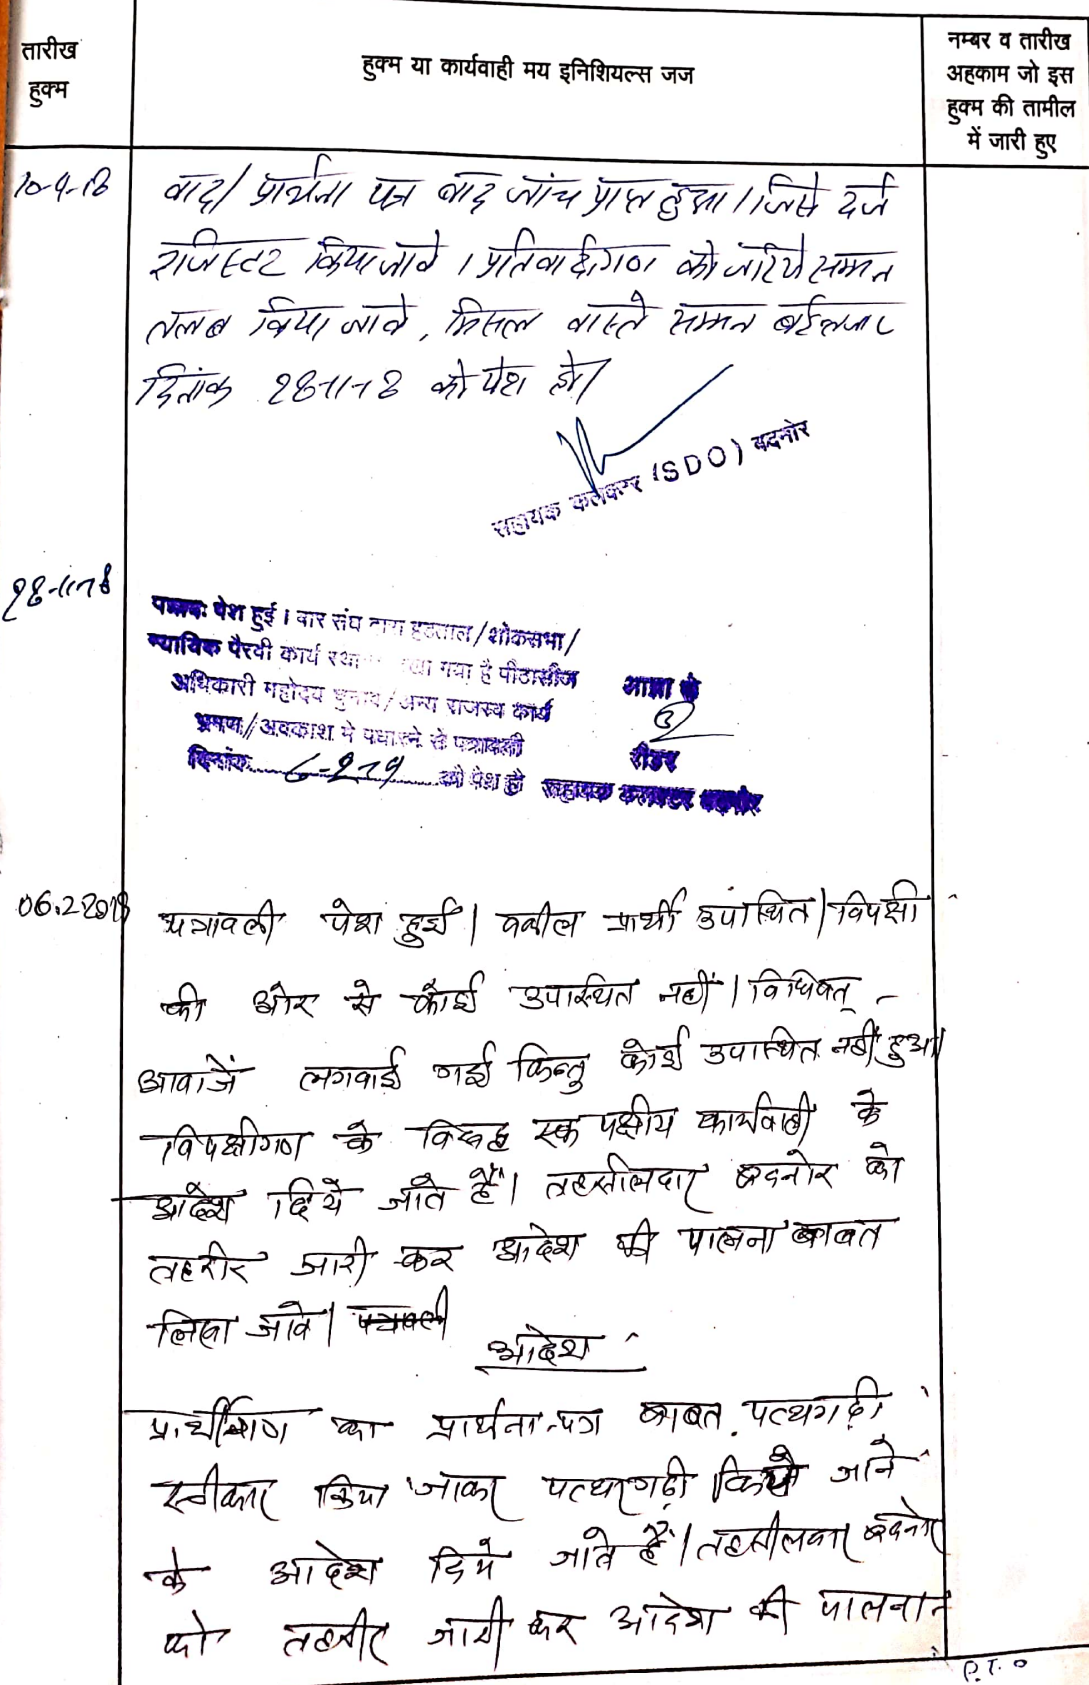 तारीख
हुक्म
हुक्म या कार्यवाही मय इनिशियल्स जज
नम्बर व तारीख
अहकाम जो इस
हुक्म की तामील
में जारी हुए
वाद/ प्रार्थना पत्र बाद जांच प्राप्त हुआ। जिसे दर्ज
रजिस्टर किया जावे। प्रतिवादीगण को जरिये सम्मन
तलब किया जावे, मिसल वास्ते सम्मन
दिनांक 28-11-18 को पेश हो।
सहायक कलेक्टर (SDO) बदनोर
28-11-18
पेश हुई। बार संघ द्वारा हडताल/शोकसभा/
न्यायिक पैरवी कार्य रखा गया है पीठासीन
अधिकारी महोदय चुनाव/अन्य राजस्व कार्य
भ्रमण/अवकाश मे पधारने से पत्रावली
दिनांक 6-2-19 को पेश हो
आज्ञा से
रीडर
सहायक कलक्टर बदनोर
पत्रावली पेश हुई। वकील प्रार्थी उपस्थित। विपक्षी
की ओर से कोई उपस्थित नहीं। विधिवत्
आवाजें लगवाई गई किन्तु कोई उपस्थित नहीं हुआ।
विपक्षीगण के विरूद्ध एक पक्षीय कार्यवाही के
आदेश दिये जाते हैं। तहसीलदार बदनोर को
तहरीर जारी कर आदेश की पालना बाबत
लिखा जावे। पत्रावली
आदेश
प्रार्थीगण का प्रार्थना-पत्र बाबत पत्थरगढ़ी
स्वीकार किया जाकर पत्थरगढ़ी किये जाने
के आदेश दिये जाते हैं। तहसीलदार बदनोर
को तहरीर जारी कर आदेश की पालना
P.T.O